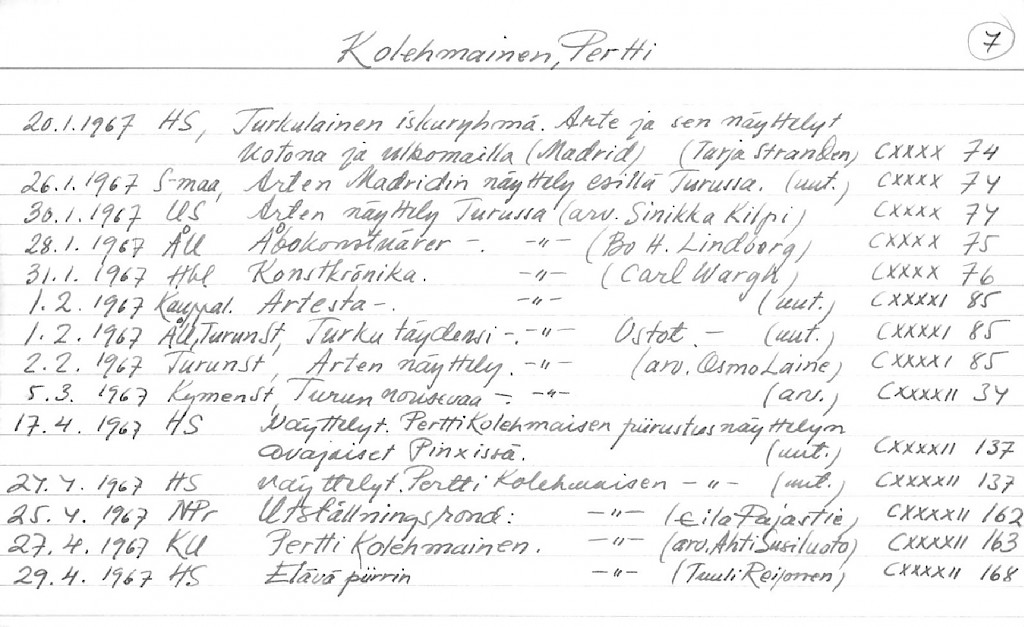 Kolehmainen, Pertti
7
20.1.1967 HS, Turkulainen iskuryhmä. Arte ja sen näyttelyt
kotona ja ulkomailla (Madrid) (Tarja Stranden) CXXXX 74
26.1.1967 S-maa, Arten Madridin näyttely esillä Turussa. (uut.) CXXXX 74
30.1.1967 US Arten näyttely Turussa (arv. Sinikka Kilpi) CXXXX 74
28.1.1967 ÅU Åbokonstnärer -. -"- (Bo H. Lindberg) CXXXX 75
31.1.1967 Hbl Konstkrönika. -"- (Carl Wargh) CXXXX 76
1.2.1967 Kauppal. Artesta -. -"- (uut.) CXXXXI 85
1.2.1967 ÅU, Turunst, Turku täydensi -. -"- Ostot. - (uut.) CXXXXI 85
2.2.1967 Turunst, Arten näyttely. -"- (arv. Osmo Laine) CXXXXI 85
5.3.1967 Kymenst, Turun nousevaa -. -"- (arv.) CXXXXII 34
17.4.1967 HS Näyttelyt. Pertti Kolehmaisen piirustusnäyttelyn
avajaiset Pinxissä. (uut.) CXXXXII 137
27.4.1967 HS Näyttelyt. Pertti Kolehmaisen -"- (uut.) CXXXXII 137
25.4.1967 NPr Utställningsrond: -"- (Eila Pajastie) CXXXXII 162
27.4.1967 KU Pertti Kolehmainen. -"- (arv. Ahti Susiluoto) CXXXXII 163
29.4.1967 HS Elävä piirrin -"- (Tuuli Reijonen) CXXXXII 168